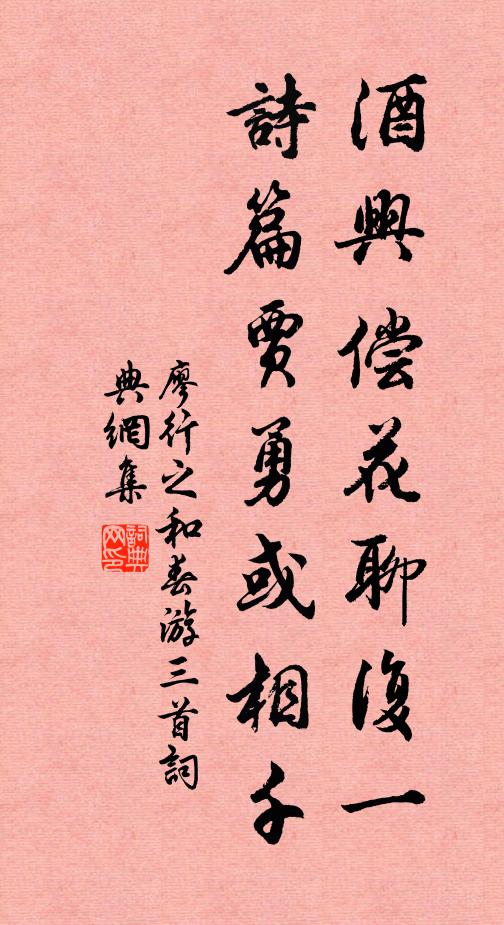 酒興偿花聊復一
詩篇賈勇或相千
廖行之和春游三首詞
典網集
詞典网印